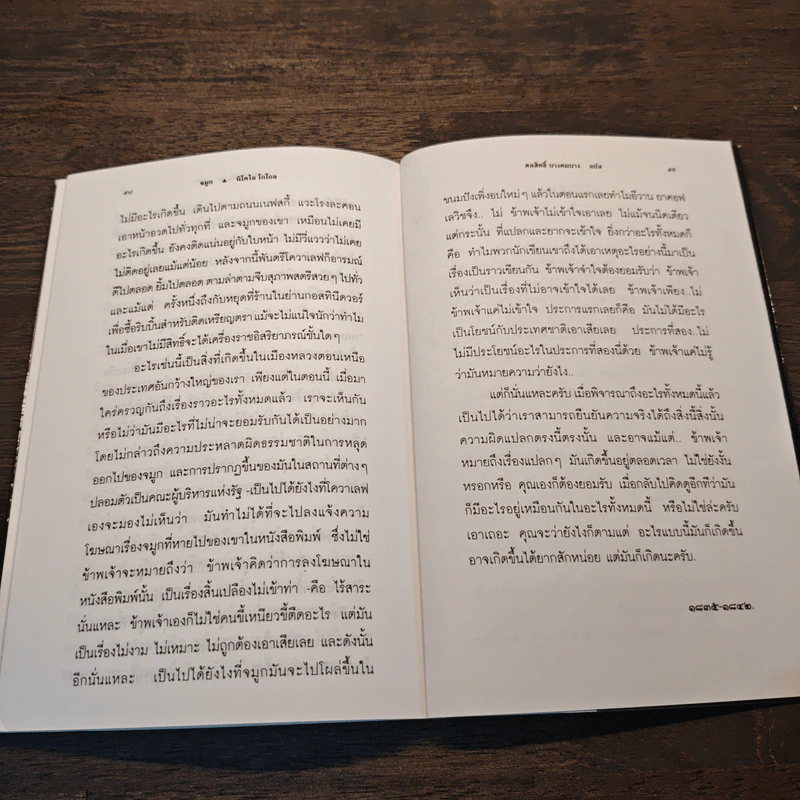 ๕๘
จมูก ▲ นิโคไล โกโกล
ไม่มีอะไรเกิดขึ้น เดินไปตามถนนเนฟสกี้ แวะโรงละคอน
เอาหน้าอวดไปทั่วทุกที่ และจมูกของเขา เหมือนไม่เคยมี
อะไรเกิดขึ้น ยังคงติดแน่นอยู่กับใบหน้า ไม่มีวี่แววว่าไม่เคย
ไม่ติดอยู่เลยแม้แต่น้อย หลังจากนี้พันตรีโควาเลฟก็อารมณ์
ดีไปตลอด ยิ้มไปตลอด ตามล่าตามจีบสุภาพสตรีสวยๆ ไปทั่ว
และแม้แต่ ครั้งหนึ่งถึงกับหยุดที่ร้านในย่านกอสทินืดวอร์
เพื่อซื้อริบบิ้นสำหรับติดเหรียญตรา แม้จะไม่แน่ใจนักว่าทำไม
ในเมื่อเขาไม่มีสิทธิ์จะได้เครื่องราชอิสริยาภรณ์ชั้นใดๆ
อะไรเช่นนี้เป็นสิ่งที่เกิดขึ้นในเมืองหลวงตอนเหนือ
ของประเทศอันกว้างใหญ่ของเรา เพียงแต่ในตอนนี้ เมื่อมา
ใคร่ครวญกันถึงเรื่องราวอะไรทั้งหมดแล้ว เราจะเห็นกัน
หรือไม่ว่ามันมีอะไรที่ไม่น่าจะยอมรับกันได้เป็นอย่างมาก
โดยไม่กล่าวถึงความประหลาดผิดธรรมชาติในการหลุด
ออกไปของจมูก และการปรากฏขึ้นของมันในสถานที่ต่างๆ
ปลอมตัวเป็นคณะผู้บริหารแห่งรัฐ -เป็นไปได้ยังไงที่โควาเลฟ
เองจะมองไม่เห็นว่า มันทำไม่ได้ที่จะไปลงแจ้งความ
โฆษณาเรื่องจมูกที่หายไปของเขาในหนังสือพิมพ์ ซึ่งไม่ใช่
ข้าพเจ้าจะหมายถึงว่า ข้าพเจ้าคิดว่าการลงโฆษณาใน
หนังสือพิมพ์นั้น เป็นเรื่องสิ้นเปลืองไม่เข้าท่า -คือ ไร้สาระ
นั่นแหละ ข้าพเจ้าเองก็ไม่ใช่คนขี้เหนียวขี้ตืดอะไร แต่มัน
เป็นเรื่องไม่งาม ไม่เหมาะ ไม่ถูกต้องเอาเสียเลย และดังนั้น
อีกนั่นแหละ เป็นไปได้ยังไงที่จมูกมันจะไปโผล่ขึ้นใน
ดลสิทธิ์ บางคมบาง แปล
๕๙
ขนมปังเพิ่งอบใหม่ๆ แล้วในตอนแรกเลยทำไมอีวาน ยาคอฟ
เลวิชจึง.. ไม่ ข้าพเจ้าไม่เข้าใจเอาเลย ไม่แม้จนนิดเดียว
แต่กระนั้น ที่แปลกและยากจะเข้าใจ ยิ่งกว่าอะไรทั้งหมดก็
คือ ทำไมพวกนักเขียนเขาถึงได้เอาเหตุอะไรอย่างนี้มาเป็น
เรื่องเป็นราวเขียนกัน ข้าพเจ้าจำใจต้องยอมรับว่า ข้าพเจ้า
เห็นว่าเป็นเรื่องที่ไม่อาจเข้าใจได้เลย ข้าพเจ้าเพียง..ไม่
ข้าพเจ้าแค่ไม่เข้าใจ ประการแรกเลยก็คือ มันไม่ได้มีอะไร
เป็นโยชน์กับประเทศชาติเอาเสียเลย ประการที่สอง..ไม่
ไม่มีประโยชน์อะไรในประการที่สองนี้ด้วย ข้าพเจ้าแค่ไม่รู้
ว่ามันหมายความว่ายังไง..
แต่ก็นั่นแหละครับ เมื่อพิจารณาถึงอะไรทั้งหมดนี้แล้ว
เป็นไปได้ว่าเราสามารถยืนยันความจริงได้ถึงสิ่งนี้สิ่งนั้น
ความผิดแปลกตรงนี้ตรงนั้น และอาจแม้แต่.. ข้าพเจ้า
หมายถึงเรื่องแปลกๆ มันเกิดขึ้นอยู่ตลอดเวลา ไม่ใช่ยังงั้น
หรอกหรือ คุณเองก็ต้องยอมรับ เมื่อกลับไปคิดดูอีกทีว่ามัน
ก็มีอะไรอยู่เหมือนกันในอะไรทั้งหมดนี้ หรือไม่ใช่ล่ะครับ
เอาเถอะ คุณจะว่ายังไงก็ตามแต่ อะไรแบบนี้มันก็เกิดขึ้น
อาจเกิดขึ้นได้ยากสักหน่อย แต่มันก็เกิดนะครับ.
๑๘๓๕-๑๘๔๒.